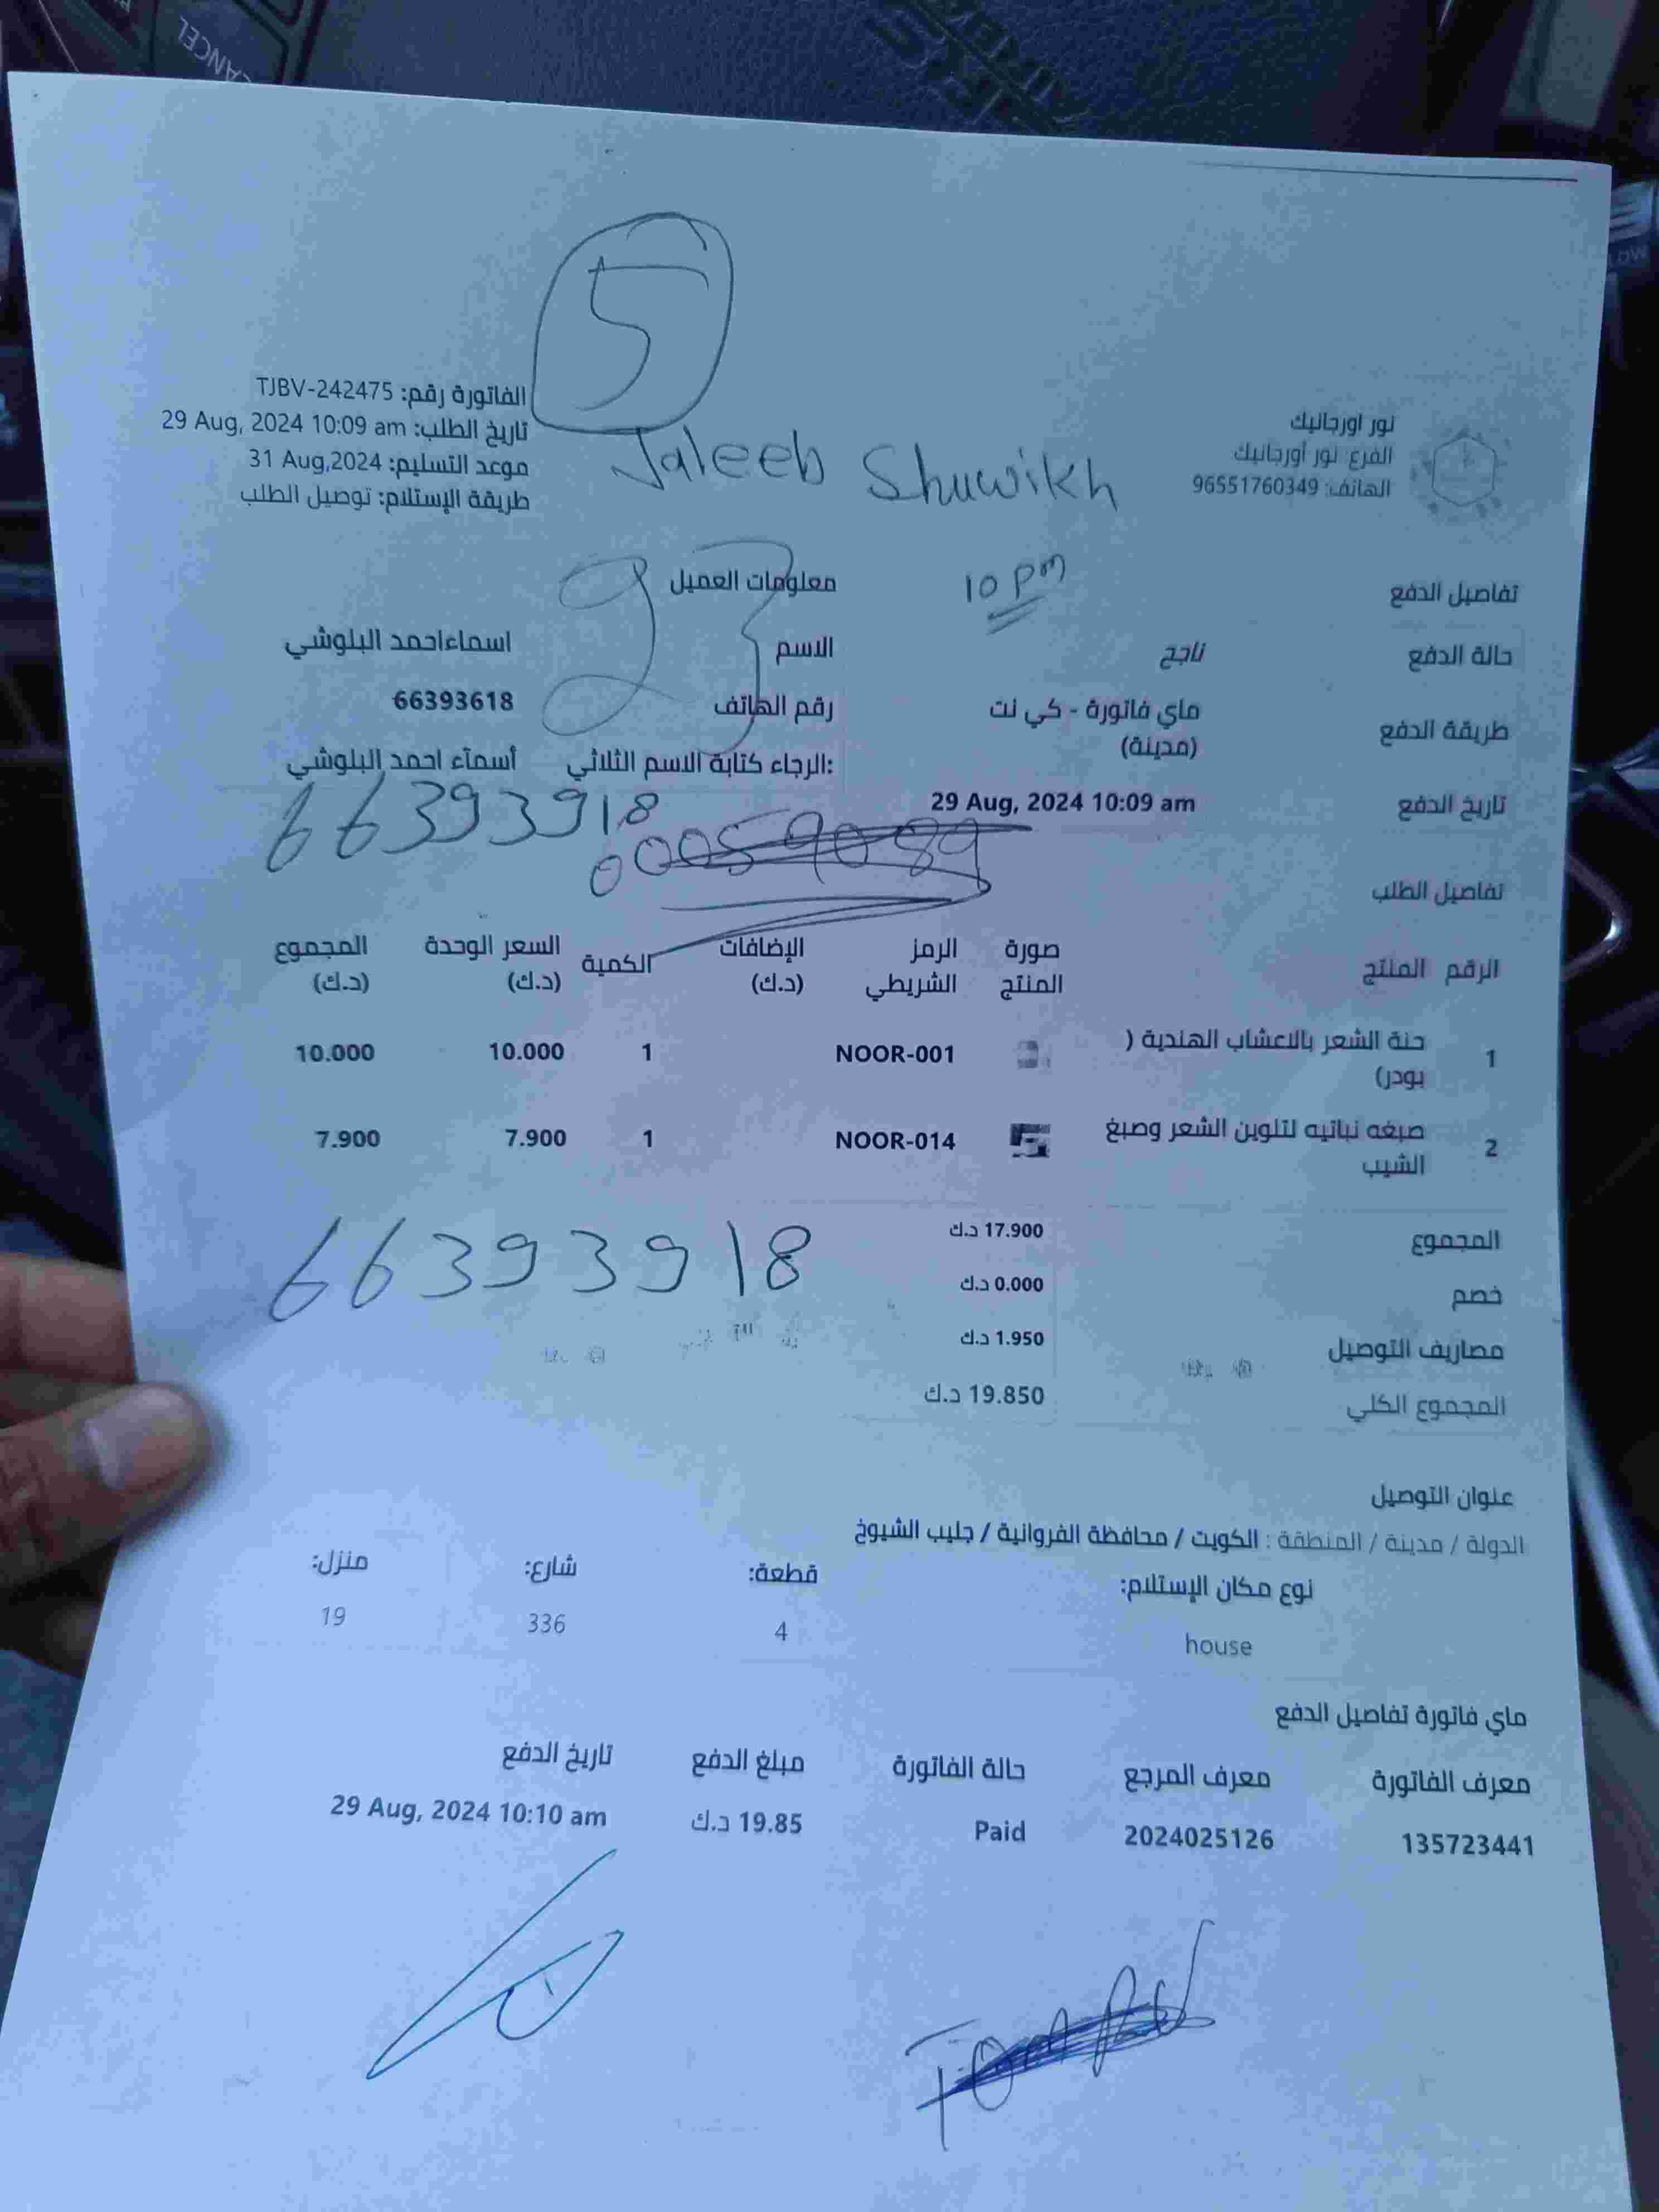 CANCEL
5
نور اورجانيك
الفرع: نور أورجانيك
الهاتف: 96551760349
الفاتورة رقم: TJBV-242475
تاريخ الطلب: 29 Aug, 2024 10:09 am
موعد التسليم: 31 Aug,2024
طريقة الإستلام: توصيل الطلب
Jaleeb Shuwikh
10 pm
93
تفاصيل الدفع
حالة الدفع ناجح
طريقة الدفع ماي فاتورة - كي نت
(مدينة)
تاريخ الدفع 29 Aug, 2024 10:09 am
معلومات العميل
الاسم اسماءاحمد البلوشي
رقم الهاتف 66393618
الرجاء كتابة الاسم الثلاثي: أسمآء احمد البلوشي
66393918
تفاصيل الطلب
الرقم المنتج صورة المنتج الرمز الشريطي الإضافات (د.ك) الكمية السعر الوحدة (د.ك) المجموع (د.ك)
1 حنة الشعر بالاعشاب الهندية ( بودر) NOOR-001 1 10.000 10.000
2 صبغه نباتيه لتلوين الشعر وصبغ الشيب NOOR-014 1 7.900 7.900
المجموع 17.900 د.ك
خصم 0.000 د.ك
مصاريف التوصيل 1.950 د.ك
المجموع الكلي 19.850 د.ك
66393918
عنوان التوصيل
الدولة / مدينة / المنطقة : الكويت / محافظة الفروانية / جليب الشيوخ
نوع مكان الإستلام: قطعة: شارع: منزل:
house 4 336 19
ماي فاتورة تفاصيل الدفع
معرف الفاتورة معرف المرجع حالة الفاتورة مبلغ الدفع تاريخ الدفع
135723441 2024025126 Paid 19.85 د.ك 29 Aug, 2024 10:10 am